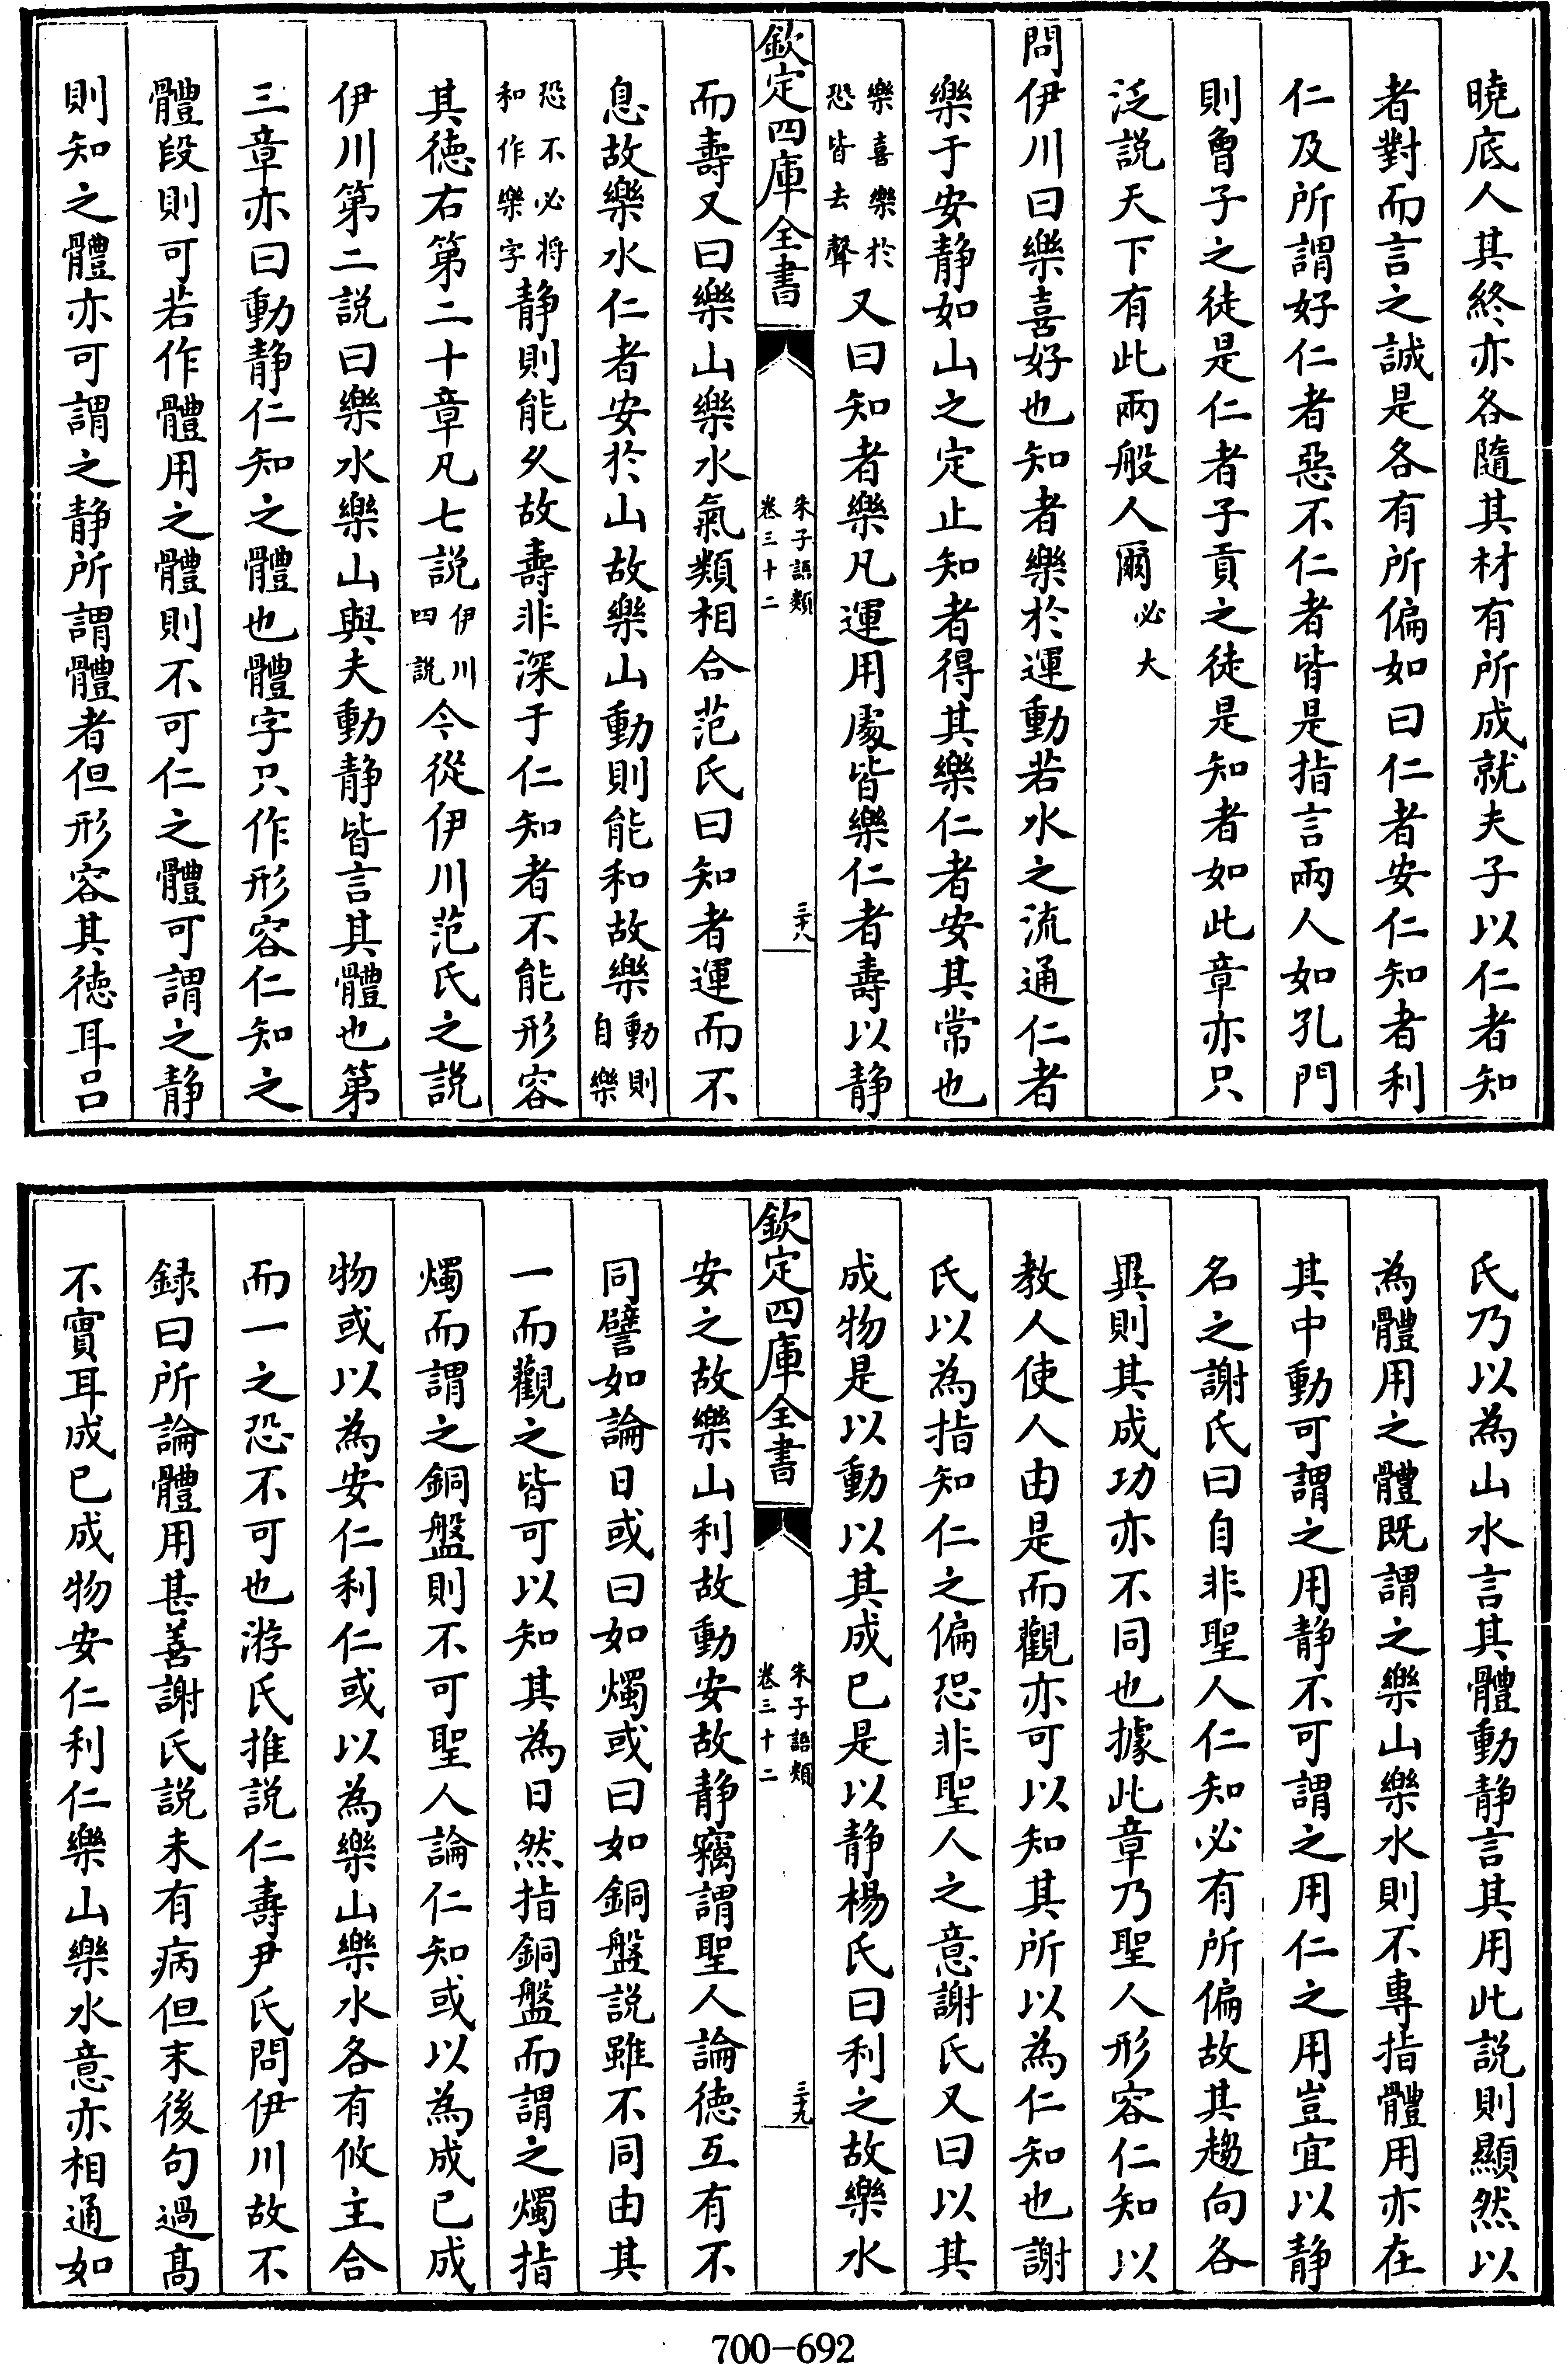 曉底人其終亦各隨其材有所成就夫子以仁者知
者對而言之誠是各有所偏如曰仁者安仁知者利
仁及所謂好仁者惡不仁者皆是指言兩人如孔門
則曾子之徒是仁者子貢之徒是知者如此章亦只
泛説天下有此兩般人爾必大
問伊川曰樂喜好也知者樂於運動若水之流通仁者
樂于安静如山之定止知者得其樂仁者安其常也
樂喜樂於恐皆去聲又曰知者樂凡運用處皆樂仁者壽以静
欽定四庫全書
朱子語類
卷三十二
三十八
而壽又曰樂山樂水氣類相合范氏曰知者運而不
息故樂水仁者安於山故樂山動則能和故樂動則自樂
恐不必将和作樂字静則能久故壽非深于仁知者不能形容
其徳右第二十章凡七説伊川四説今從伊川范氏之説
伊川第二説曰樂水樂山與夫動静皆言其體也第
三章亦曰動静仁知之體也體字只作形容仁知之
體段則可若作體用之體則不可仁之體可謂之静
則知之體亦可謂之静所謂體者但形容其徳耳吕
氏乃以為山水言其體動静言其用此説則顯然以
為體用之體既謂之樂山樂水則不專指體用亦在
其中動可謂之用静不可謂之用仁之用豈宜以静
名之謝氏曰自非聖人仁知必有所偏故其趨向各
異則其成功亦不同也據此章乃聖人形容仁知以
教人使人由是而觀亦可以知其所以為仁知也謝
氏以為指知仁之偏恐非聖人之意謝氏又曰以其
成物是以動以其成已是以静楊氏曰利之故樂水
欽定四庫全書
朱子語類
卷三十二
三十九
安之故樂山利故動安故静竊謂聖人論徳互有不
同譬如論日或曰如燭或曰如銅盤説雖不同由其
一而觀之皆可以知其為日然指銅盤而謂之燭指
燭而謂之銅盤則不可聖人論仁知或以為成已成
物或以為安仁利仁或以為樂山樂水各有攸主合
而一之恐不可也游氏推説仁壽尹氏問伊川故不
録曰所論體用甚善謝氏説未有病但末後句過髙
不實耳成已成物安仁利仁樂山樂水意亦相通如
700-692